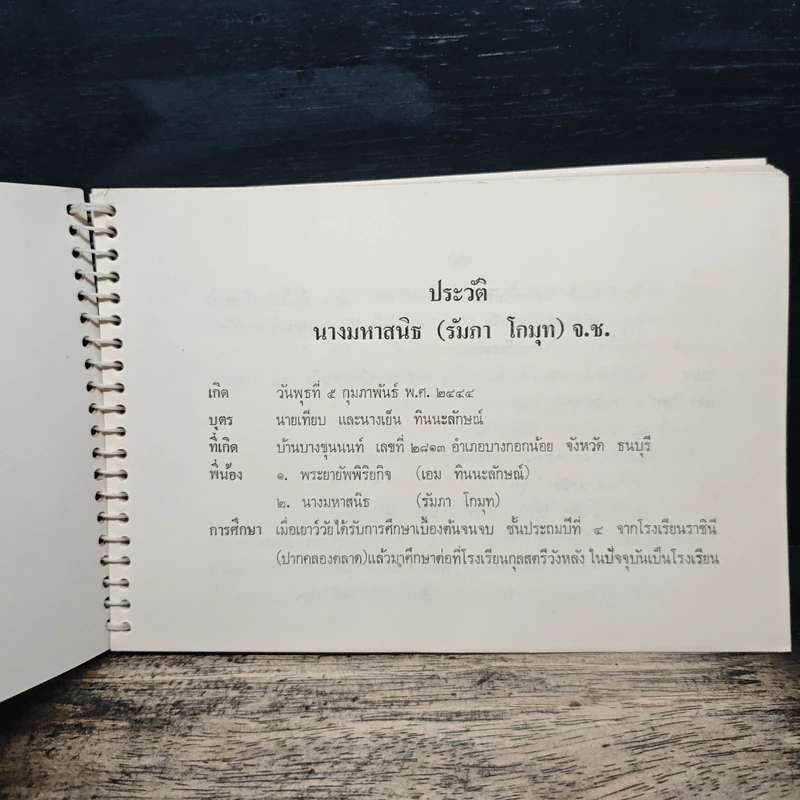 ประวัติ
นางมหาสนิธ (รัมภา โกมุท) จ.ช.
เกิด วันพุธที่ ๕ กุมภาพันธ์ พ.ศ. ๒๔๔๔
บุตร นายเทียบ และนางเย็น ทินนะลักษณ์
ที่เกิด บ้านบางขุนนนท์ เลขที่ ๒๘๑๓ อำเภอบางกอกน้อย จังหวัด ธนบุรี
พี่น้อง ๑. พระยายัพพิริยกิจ (เอม ทินนะลักษณ์)
๒. นางมหาสนิธ (รัมภา โกมุท)
การศึกษา เมื่อเยาว์วัยได้รับการศึกษาเบื้องต้นจนจบ ชั้นประถมปีที่ ๔ จากโรงเรียนราชินี
(ปากคลองตลาด)แล้วมาศึกษาต่อที่โรงเรียนกุลสตรีวังหลัง ในปัจจุบันเป็นโรงเรียน